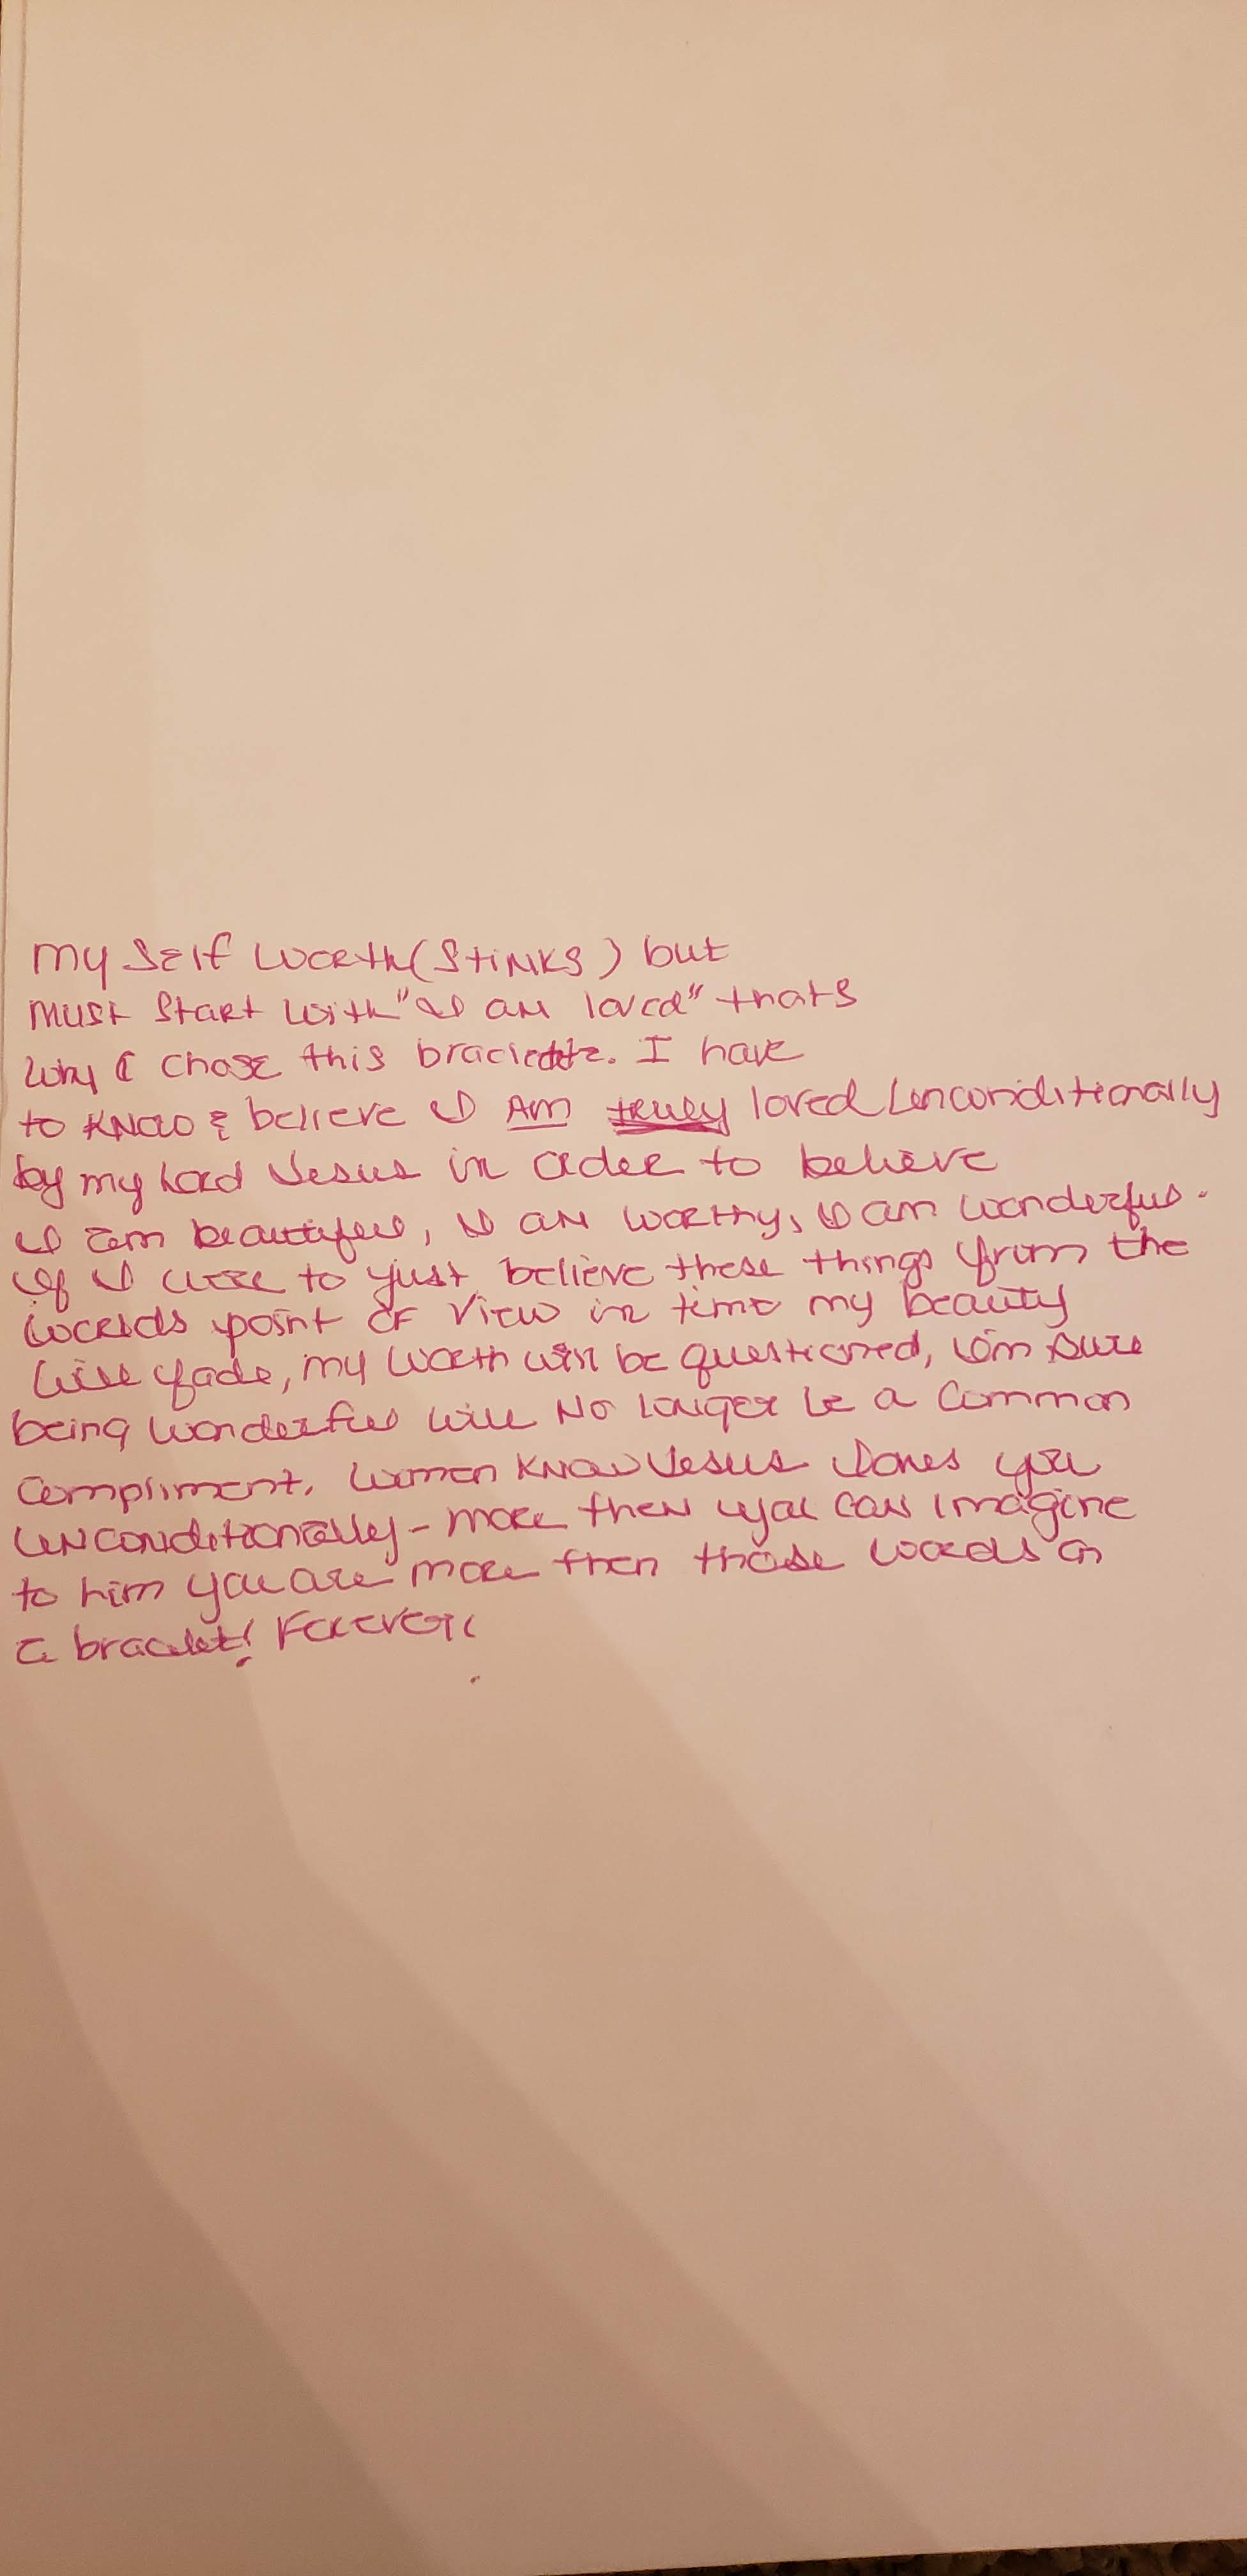 my self worth (stinks) but
must start with "I am loved" thats
why I chose this braclette. I have
to know & believe I AM truly loved unconditionally
by my Lord Jesus in order to believe
I am beautiful, I am worthy, I am wonderful.
If I were to just believe these things from the
worlds point of view in time my beauty
will fade, my worth will be questioned, I'm sure
being wonderful will no longer be a common
compliment. Women know Jesus loves you
unconditionally - more then you can imagine
to him you are more then those words on
a bracelet! Forever!